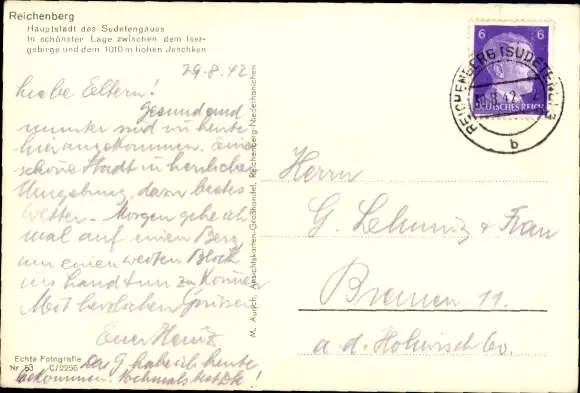 Reichenberg
Hauptstadt des Sudetengaues
In schönster Lage zwischen dem Iser-
gebirge und dem 1010 m hohen Jeschken
29.8.42
Liebe Eltern!
Gesund und
munter sind wir heute
hier angekommen. Eine
schöne Stadt in herrlicher
Umgebung, dazu bestes
Wetter. Morgen gehe ich
mal auf einen Berg
um einen weiten Blick
ins Land tun zu können
Mit herzlichen Grüssen
Euer Heinz
Das G habe ich heute
bekommen. Nochmals besten Dk!
Echte Fotografie
Nr. 53 C/2256
M. Aurich, Ansichtskarten-Großhandel, Reichenberg-Niederhanichen
6 6
DEUTSCHES REICH
REICHENBERG (SUDETENL)
b
Herrn
G. & Frau
Bremen 11.
a. d.